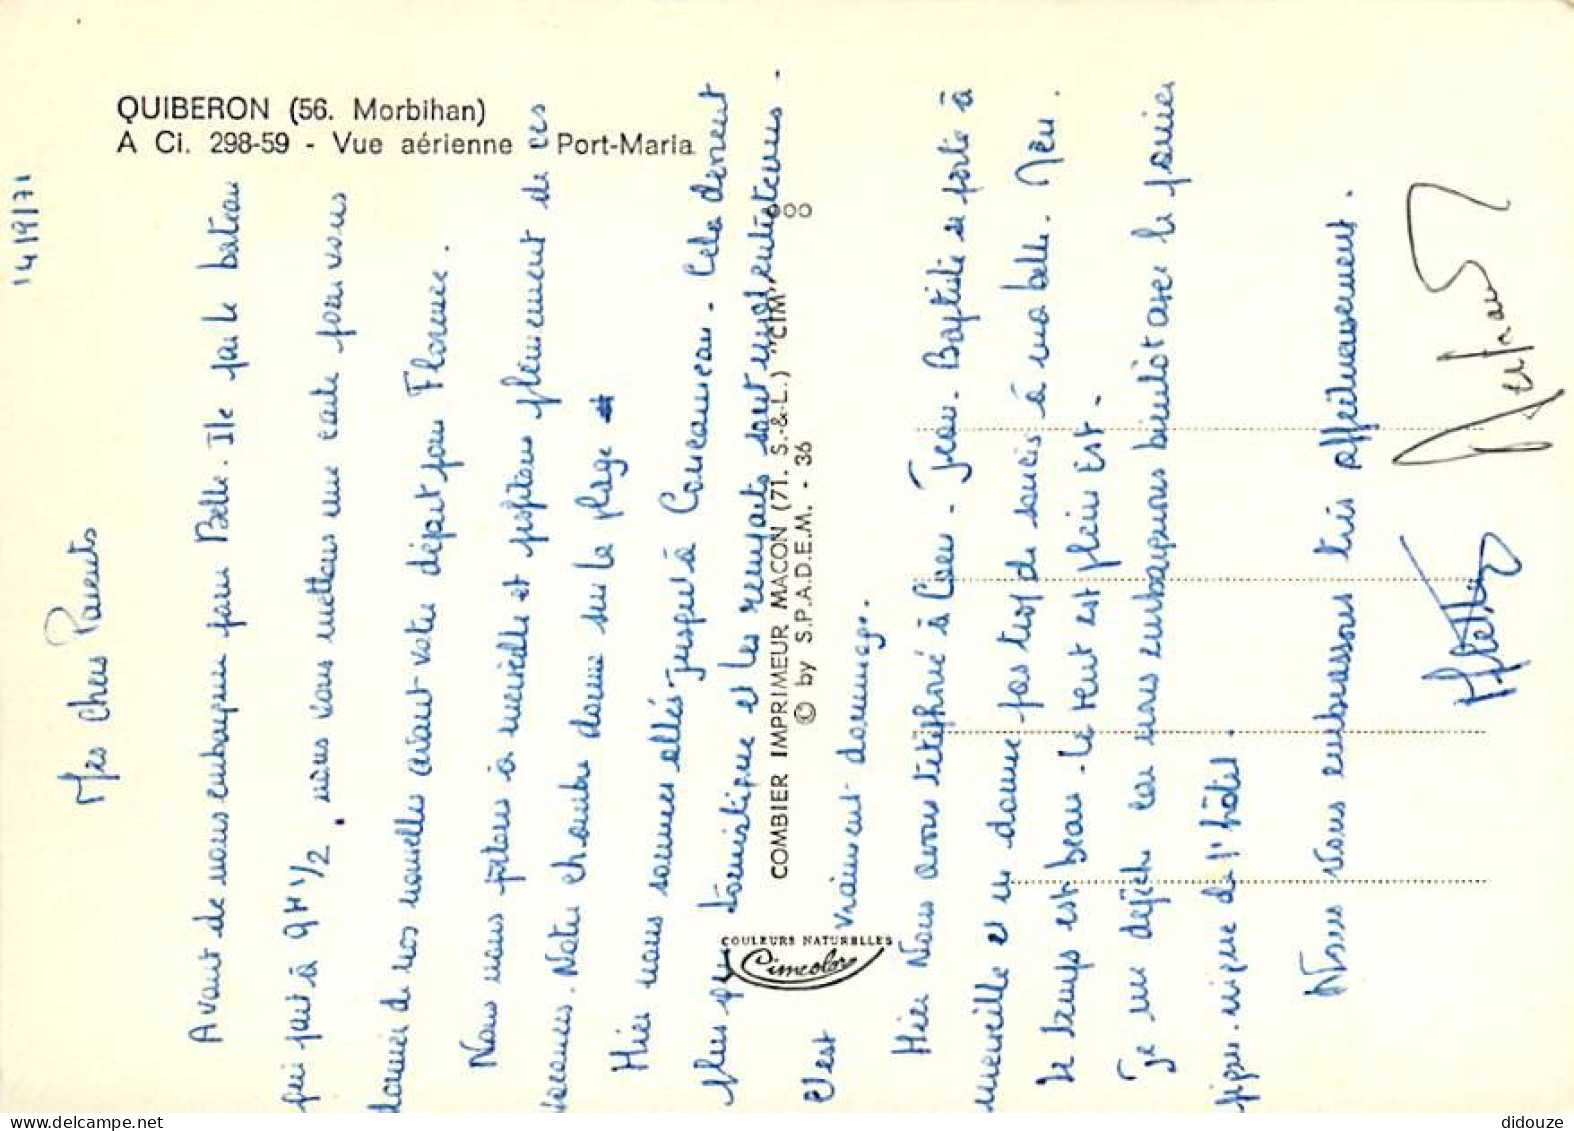 QUIBERON (56. Morbihan)
A Ci. 298-59 - Vue aérienne - Port-Maria
COMBIER IMPRIMEUR MACON (71. S.-&-L.) "CIM"
© by S.P.A.D.E.M. - 36
COULEURS NATURELLES
Cimcolor
14/9/71
Mes chers Parents
Avant de nous embarquer pour Belle. Ile par le bateau
qui part à 9H 1/2, nous vous mettons une carte pour vous
donner de nos nouvelles avant votre départ pour Florence.
Nous nous portons à merveille et profitons pleinement de ces
vacances. Notre chambre donne sur la plage
Hier nous sommes allés jusqu'à Concarneau. Cela devient
plus que touristique et les remparts sont
c'est vraiment dommage.
Hier Nous avons téléphoné à Caen. Jean. Baptiste se porte à
merveille et ne donne pas trop de soucis à ma belle. Mère.
Le temps est beau. Le vent est plein Est.
Je me dépêche car nous embarquons bientôt avec le panier
pique. nique de l'hôtel.
Nous vous embrassons très affectueusement.
didouze